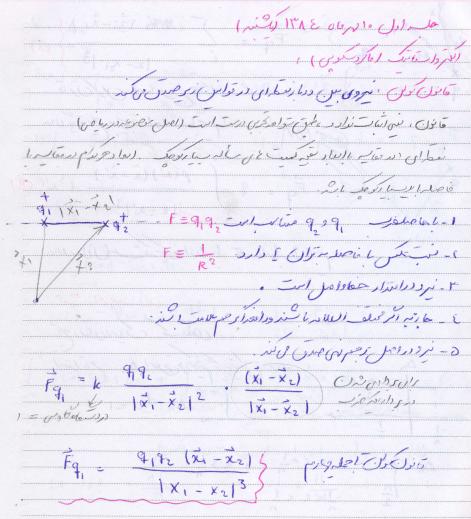 جلسه اول ۱۰ مهرماه ۱۳۸٤ (یکشنبه)
الکترواستاتیک (ماکروسکوپی) :
قانون کولن : نیروی بین دو بار نقطه‌ای در قوانین زیر صدق می‌کند
قانون : یعنی اثبات ندارد طبق شواهد تجربی درست است (اصل موضوعه در ریاضی)
نقطه‌ای : در مقایسه با ابعاد بقیه کمیت های مسأله بسیار کوچک . ابعاد هرکدام در مقایسه با
فاصله بسیار کوچک باشد.
۱- با حاصلضرب q₁ و q₂ متناسب است F ≡ q₁q₂
۲- نسبت عکس با فاصله به توان ۲ دارد F ≡ 1/R²
۳- نیرو در امتداد خط واصل است .
٤- جاذبه اگر مختلف العلامه باشند و دافعه اگر هم علامت باشند.
۵- نیرو در اصل بر هم نهی صدق می‌کند.
+ q₁ |x⃗₁ - x⃗₂| q₂ +
x⃗₁ x⃗₂
F⃗q₁ = k q₁q₂ / |x⃗₁ - x⃗₂|² · (x⃗₁ - x⃗₂) / |x⃗₁ - x⃗₂|
برای برداری شدن
در بردار یکه ضرب
در دستگاه گاوسی = ۱
F⃗q₁ = q₁q₂ (x⃗₁ - x⃗₂) / |x₁ - x₂|³
قانون کولن تا جمله چهارم